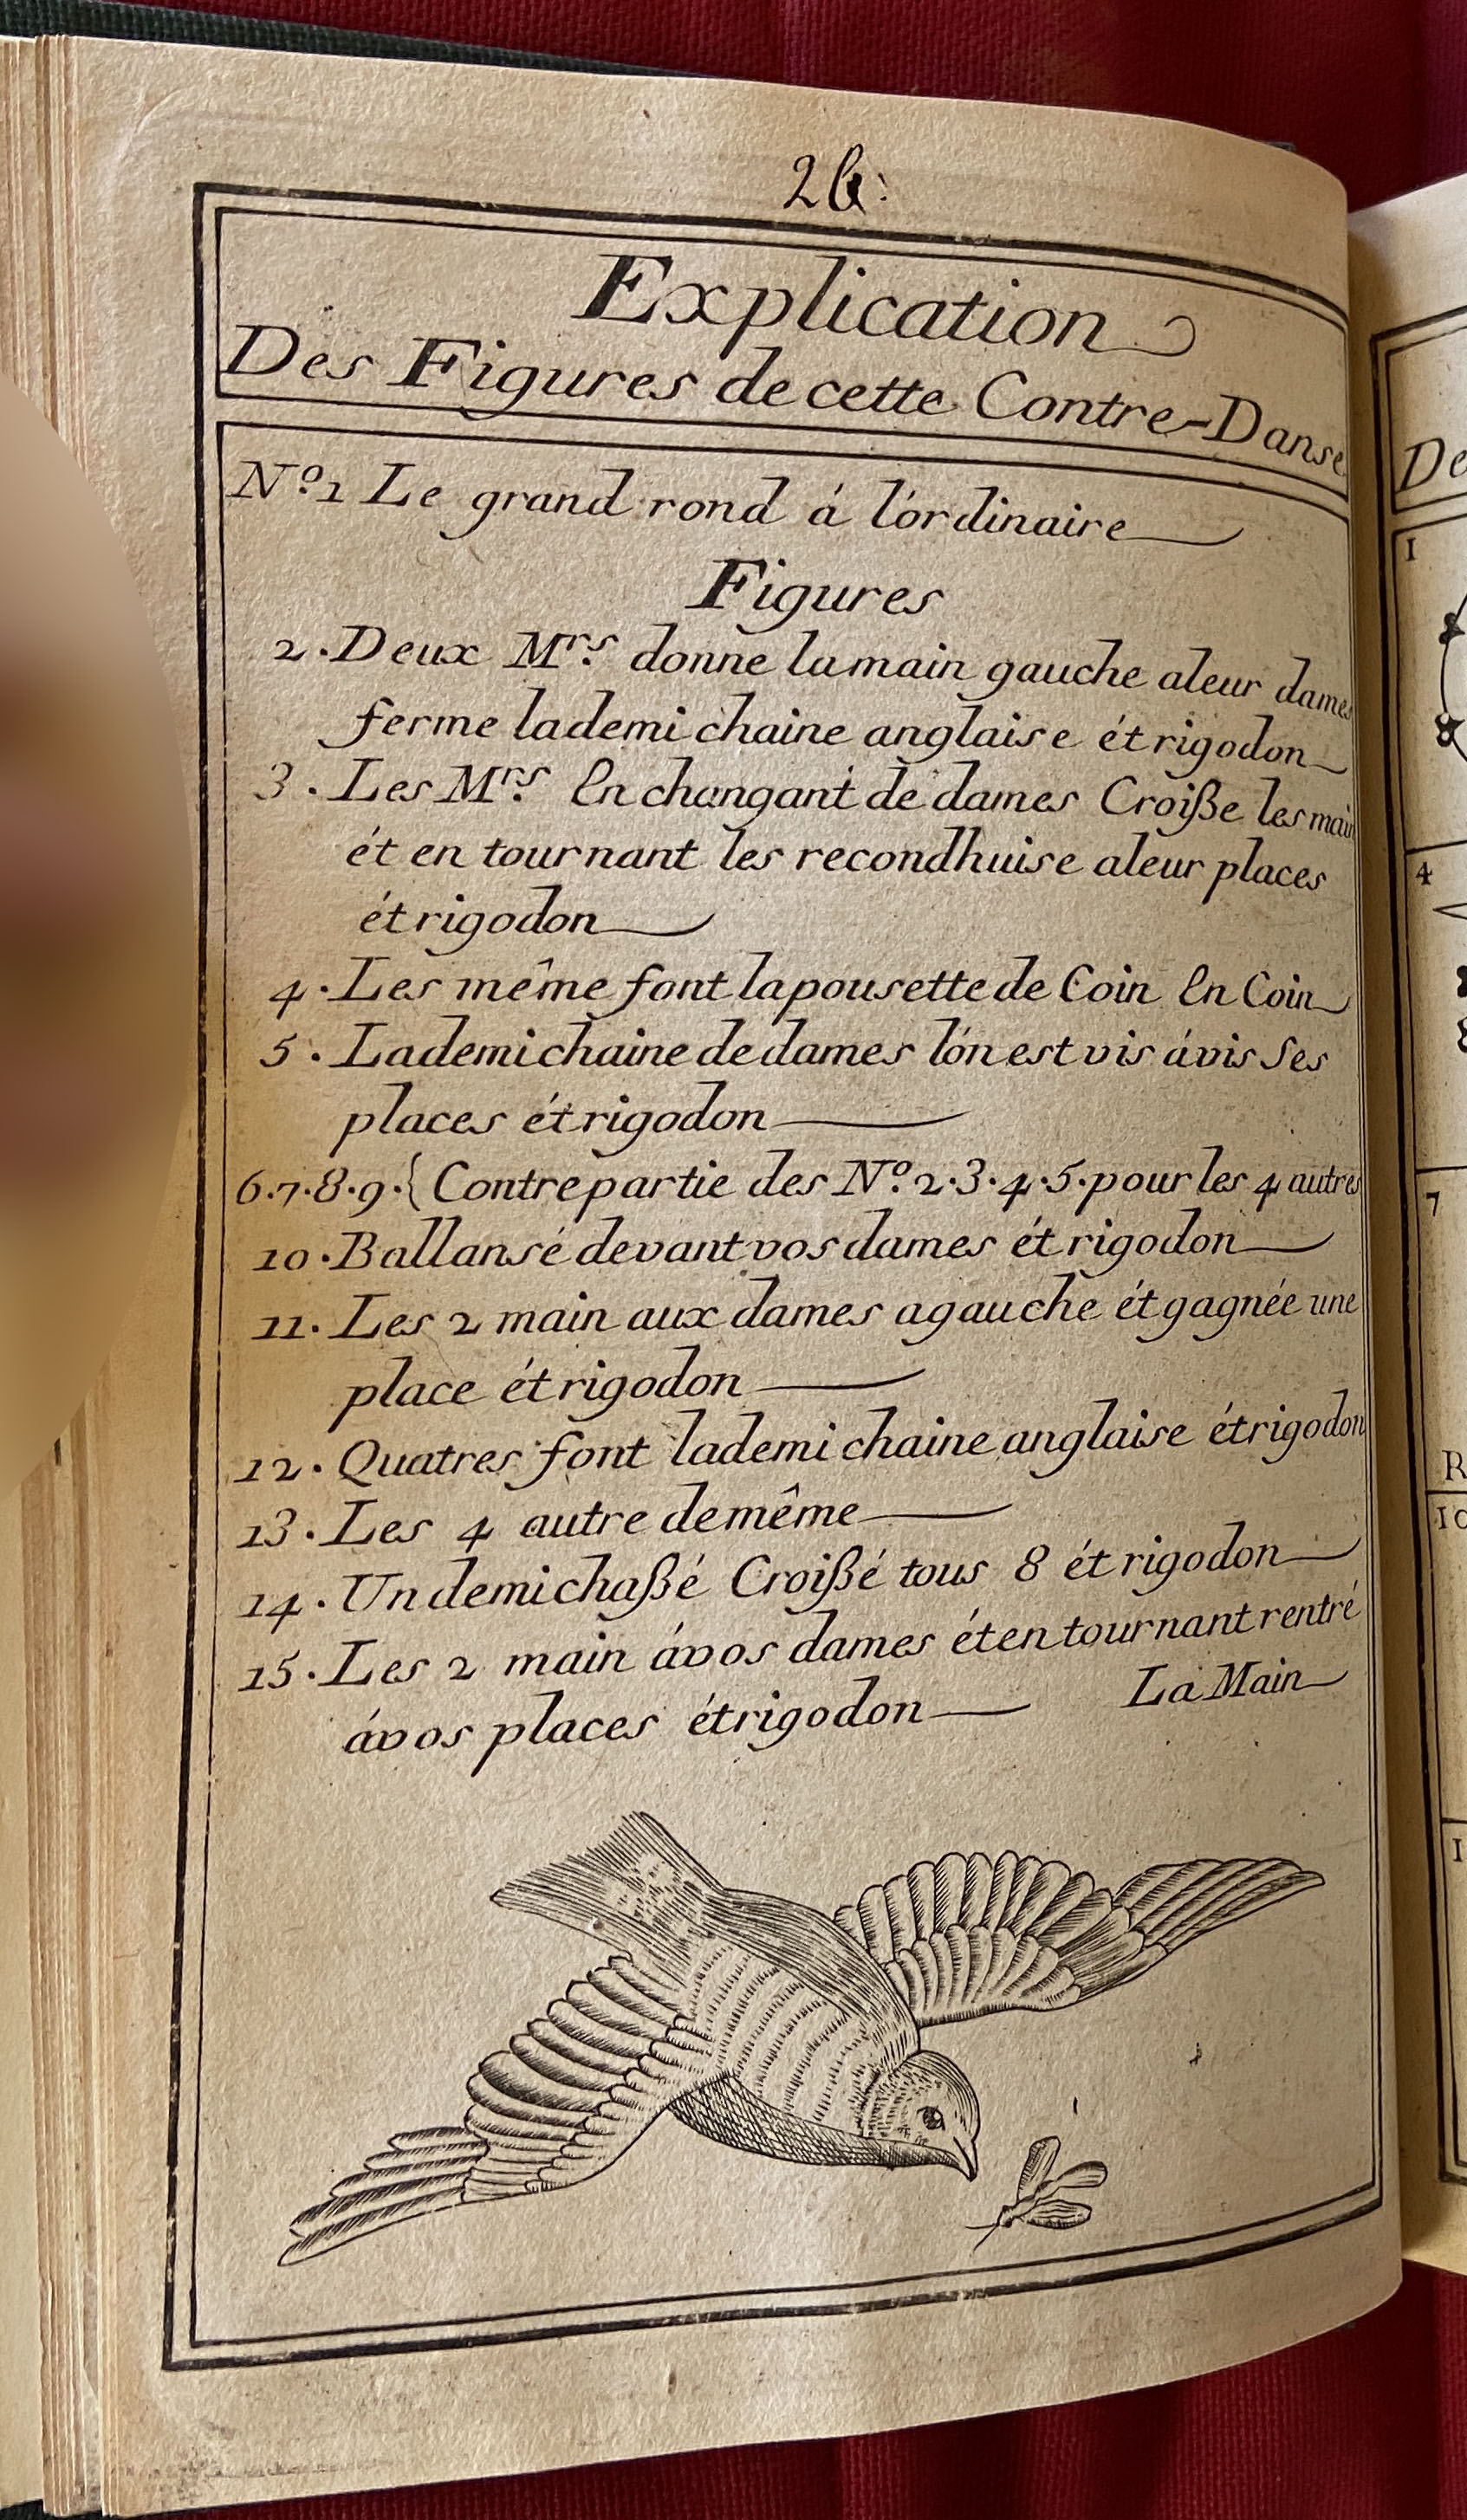 26:
Explication
Des Figures de cette Contre-Danse
Nº.1 Le grand rond á lórdinaire
Figures
2. Deux Mrs. donne la main gauche aleur dames
ferme lademi chaine anglaise ét rigodon
3. Les Mrs. En changant de dames Croiße les main
ét en tournant les recondhuise aleur places
ét rigodon
4. Les même font lapousette de Coin En Coin
5. Lademi chaine de dames lón est vis ávis Ses
places ét rigodon
6.7.8.9.{ Contrepartie des Nº. 2.3.4.5. pour les 4 autres
10. Ballansé devant vos dames ét rigodon
11. Les 2 main aux dames agauche ét gagnée une
place ét rigodon
12. Quatres font lademi chaine anglaise ét rigodon
13. Les 4 autre demême
14. Un demi chaßé Croißé tous 8 ét rigodon
15. Les 2 main ávos dames ét en tournant rentré
ávos places ét rigodon La Main
De
1
4
7
R
10